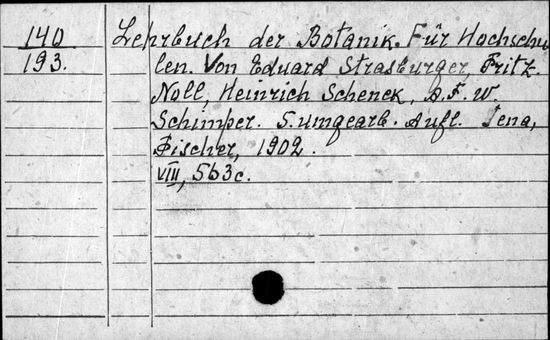 140 Lehrbuch der Botanik. Für Hochschu
193. len. Von Eduard Strasburger, Fritz
Noll, Heinrich Schenck, A. F. W.
Schimper. 5. umgearb. Aufl. Jena,
Fischer, 1902.
VIII, 563 c.